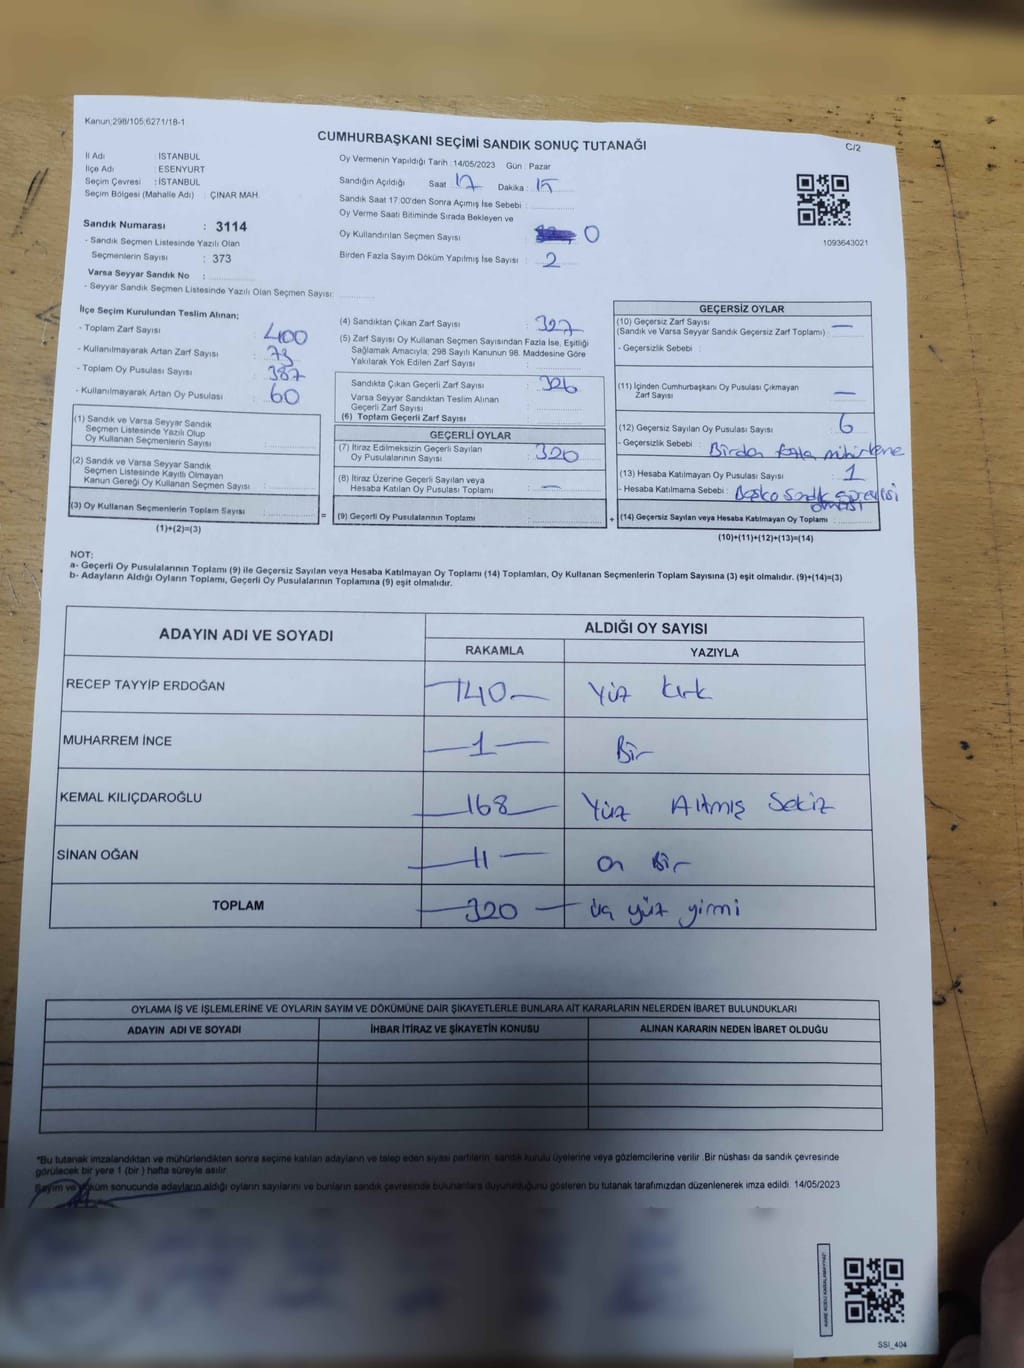 Kanun;298/105;6271/18-1
CUMHURBAŞKANI SEÇİMİ SANDIK SONUÇ TUTANAĞI
C/2
İl Adı : İSTANBUL
İlçe Adı : ESENYURT
Seçim Çevresi : İSTANBUL
Seçim Bölgesi (Mahalle Adı) : ÇINAR MAH.
Sandık Numarası : 3114
- Sandık Seçmen Listesinde Yazılı Olan
Seçmenlerin Sayısı : 373
Varsa Seyyar Sandık No :
- Seyyar Sandık Seçmen Listesinde Yazılı Olan Seçmen Sayısı:
Oy Vermenin Yapıldığı Tarih : 14/05/2023 Gün : Pazar
Sandığın Açıldığı Saat 17 Dakika : 15
Sandık Saat 17.00'den Sonra Açımış İse Sebebi :
Oy Verme Saati Bitiminde Sırada Bekleyen ve
Oy Kullandırılan Seçmen Sayısı : 0
Birden Fazla Sayım Döküm Yapılmış İse Sayısı : 2
1093643021
İlçe Seçim Kurulundan Teslim Alınan;
- Toplam Zarf Sayısı : 400
- Kullanılmayarak Artan Zarf Sayısı : 73
- Toplam Oy Pusulası Sayısı : 387
- Kullanılmayarak Artan Oy Pusulası : 60
(1) Sandık ve Varsa Seyyar Sandık
Seçmen Listesinde Yazılı Olup
Oy Kullanan Seçmenlerin Sayısı :
(2) Sandık ve Varsa Seyyar Sandık
Seçmen Listesinde Kayıtlı Olmayan
Kanun Gereği Oy Kullanan Seçmen Sayısı :
(3) Oy Kullanan Seçmenlerin Toplam Sayısı :
(1)+(2)=(3)
(4) Sandıktan Çıkan Zarf Sayısı : 327
(5) Zarf Sayısı Oy Kullanan Seçmen Sayısından Fazla İse, Eşitliği
Sağlamak Amacıyla; 298 Sayılı Kanunun 98. Maddesine Göre
Yakılarak Yok Edilen Zarf Sayısı :
Sandıkta Çıkan Geçerli Zarf Sayısı : 326
Varsa Seyyar Sandıktan Teslim Alınan
Geçerli Zarf Sayısı :
(6) Toplam Geçerli Zarf Sayısı :
GEÇERLİ OYLAR
(7) İtiraz Edilmeksizin Geçerli Sayılan
Oy Pusulalarının Sayısı : 320
(8) İtiraz Üzerine Geçerli Sayılan veya
Hesaba Katılan Oy Pusulası Toplamı : —
= (9) Geçerli Oy Pusulalarının Toplamı :
GEÇERSİZ OYLAR
(10) Geçersiz Zarf Sayısı
(Sandık ve Varsa Seyyar Sandık Geçersiz Zarf Toplamı) : —
- Geçersizlik Sebebi :
(11) İçinden Cumhurbaşkanı Oy Pusulası Çıkmayan
Zarf Sayısı : —
(12) Geçersiz Sayılan Oy Pusulası Sayısı : 6
- Geçersizlik Sebebi : Birden fazla mühürleme
(13) Hesaba Katılmayan Oy Pusulası Sayısı : 1
- Hesaba Katılmama Sebebi : Başka sandık
olması
+ (14) Geçersiz Sayılan veya Hesaba Katılmayan Oy Toplamı :
(10)+(11)+(12)+(13)=(14)
NOT:
a- Geçerli Oy Pusulalarının Toplamı (9) ile Geçersiz Sayılan veya Hesaba Katılmayan Oy Toplamı (14) Toplamları, Oy Kullanan Seçmenlerin Toplam Sayısına (3) eşit olmalıdır. (9)+(14)=(3)
b- Adayların Aldığı Oyların Toplamı, Geçerli Oy Pusulalarının Toplamına (9) eşit olmalıdır.
ADAYIN ADI VE SOYADI ALDIĞI OY SAYISI
RAKAMLA YAZIYLA
RECEP TAYYİP ERDOĞAN —140— Yüz kırk
MUHARREM İNCE —1— Bir
KEMAL KILIÇDAROĞLU —168— Yüz Altmış Sekiz
SİNAN OĞAN —11— on Bir
TOPLAM —320— üç yüz yirmi
OYLAMA İŞ VE İŞLEMLERİNE VE OYLARIN SAYIM VE DÖKÜMÜNE DAİR ŞİKAYETLERLE BUNLARA AİT KARARLARIN NELERDEN İBARET BULUNDUKLARI
ADAYIN ADI VE SOYADI İHBAR İTİRAZ VE ŞİKAYETİN KONUSU ALINAN KARARIN NEDEN İBARET OLDUĞU
*Bu tutanak imzalandıktan ve mühürlendikten sonra seçime katılan adayların ve talep eden siyasi partilerin sandık kurulu üyelerine veya gözlemcilerine verilir .Bir nüshası da sandık çevresinde
görülecek bir yere 1 (bir ) hafta süreyle asılır.
Sayım ve döküm sonucunda adayların aldığı oyların sayılarını ve bunların sandık çevresinde bulunanlara duyurulduğunu gösteren bu tutanak tarafımızdan düzenlenerek imza edildi. 14/05/2023
SSI_404